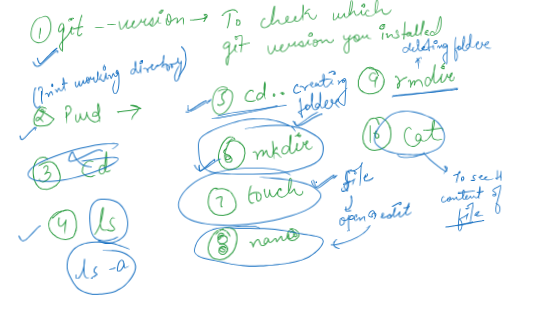 ① git --version → To check which
git version you installed
(Print working directory)
② Pwd →
③ cd
④ ls
ls -a
⑤ cd..
creating
folder
⑥ mkdir
⑦ touch
file
open & edit
⑧ nano
deleting folder
⑨ rmdir
⑩ cat
To see
content of
file